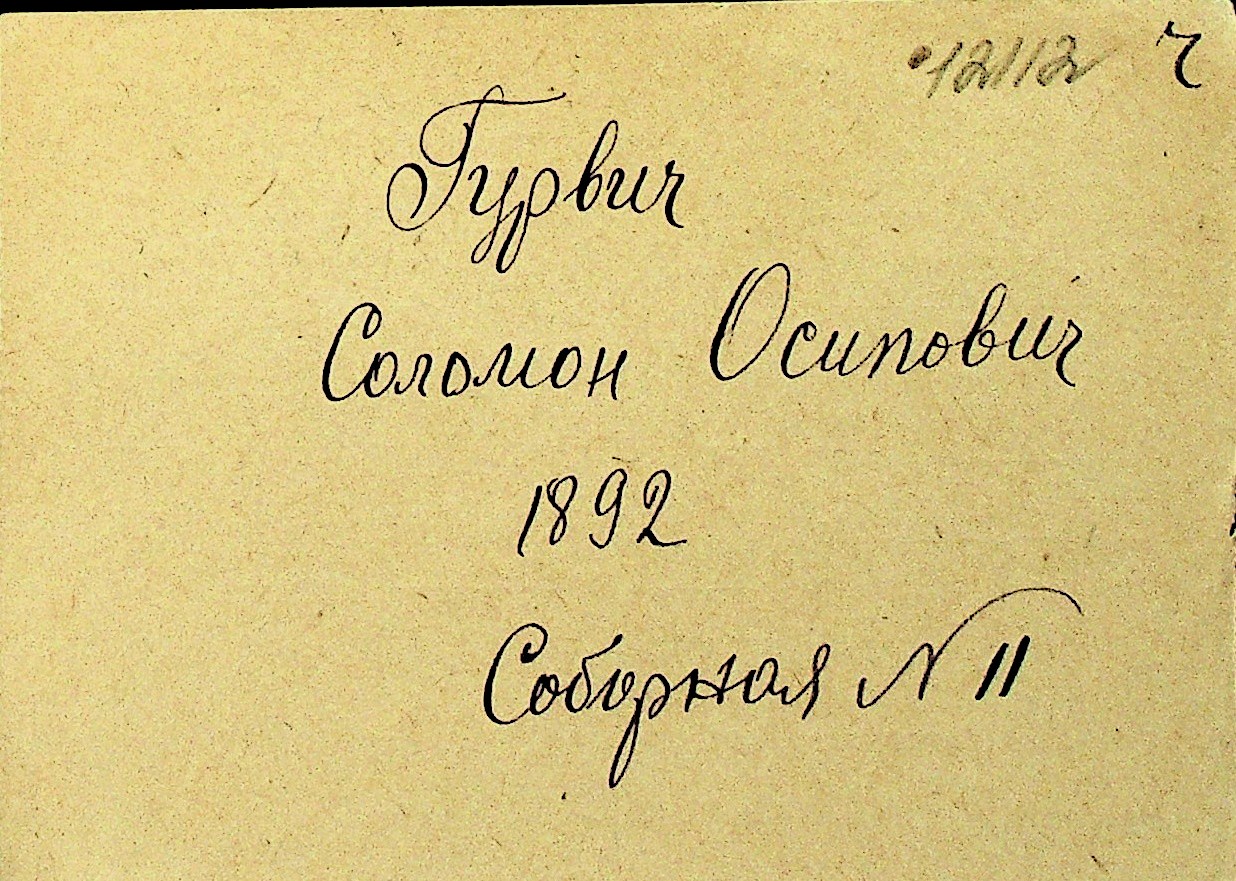 12/12 ч
Гурвич
Соломон Осипович
1892
Соборная № 11